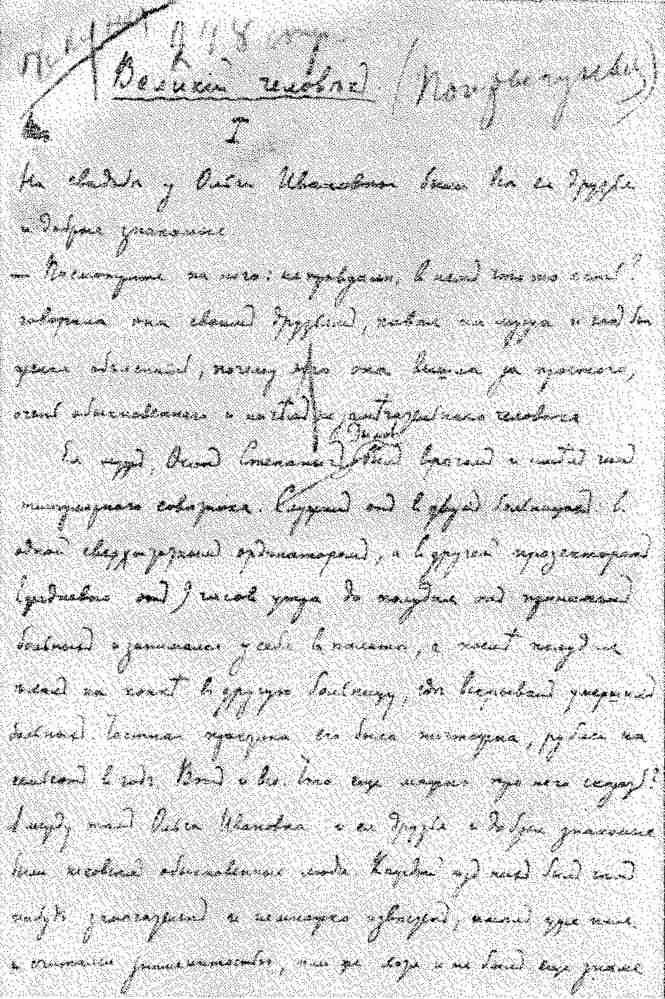 248 стр.
Великій человѣкъ (Попрыгунья)
I
На свадьбѣ у Ольги Ивановны были всѣ ея друзья
и добрые знакомые
— Посмотрите на него: не правда ли, въ немъ что-то есть?
говорила она своимъ друзьямъ, кивая на мужа и какъ бы
желая объяснить, почему это она вышла за простого,
очень обыкновеннаго и ничѣмъ не замѣчательнаго человѣка
Ея мужъ, Осипъ Степанычъ Дымовъ былъ врачомъ и имѣлъ чинъ
титулярнаго совѣтника. Служилъ онъ въ двухъ больницахъ: въ
одной сверхштатнымъ ординаторомъ, а въ другой прозекторомъ
Ежедневно отъ 9 часовъ утра до полудня онъ принималъ
больныхъ и занимался у себя въ палатѣ, а послѣ полудня
ѣхалъ на конкѣ въ другую больницу, гдѣ вскрывалъ умершихъ
больныхъ. Частная практика его была ничтожна, рублей на
въ годъ. Вотъ и все. Что еще можно про него сказать?
А между тѣмъ Ольга Ивановна и ея друзья и добрые знакомые
были не совсѣмъ обыкновенные люди. Каждый изъ нихъ былъ чѣмъ
нибудь замѣчателенъ и немножко извѣстенъ, имѣлъ уже имя
и считался знаменитостью, или же хотя и не былъ еще знаме